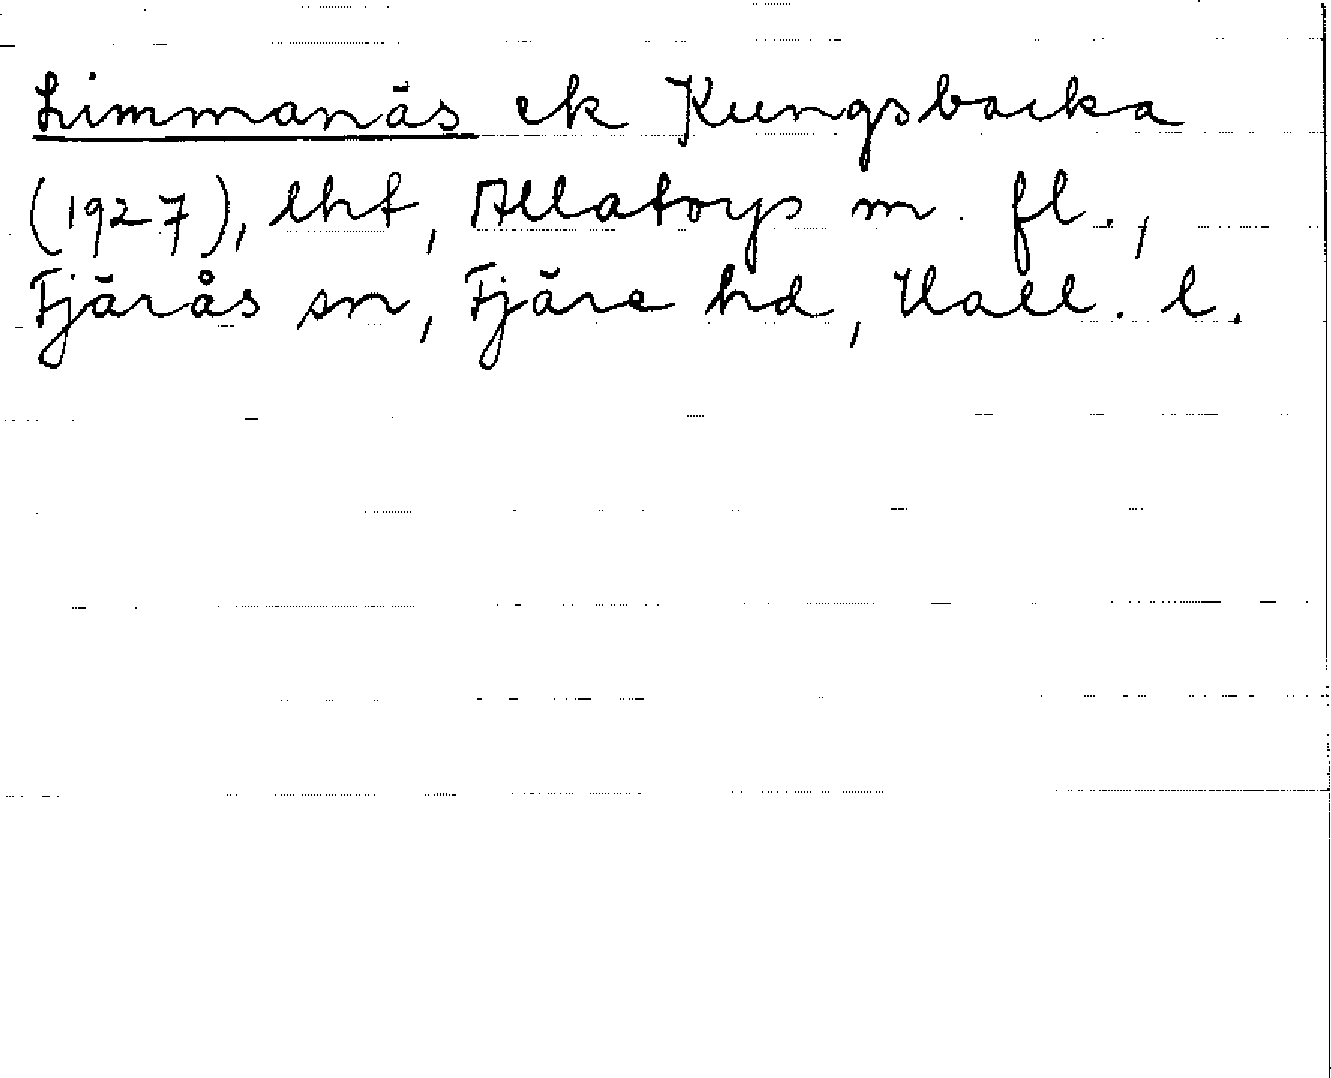 Limmanäs ek Kungsbacka
(1927), lht, Allatorp m. fl.,
Fjärås sn, Fjäre hd, Hall. l.